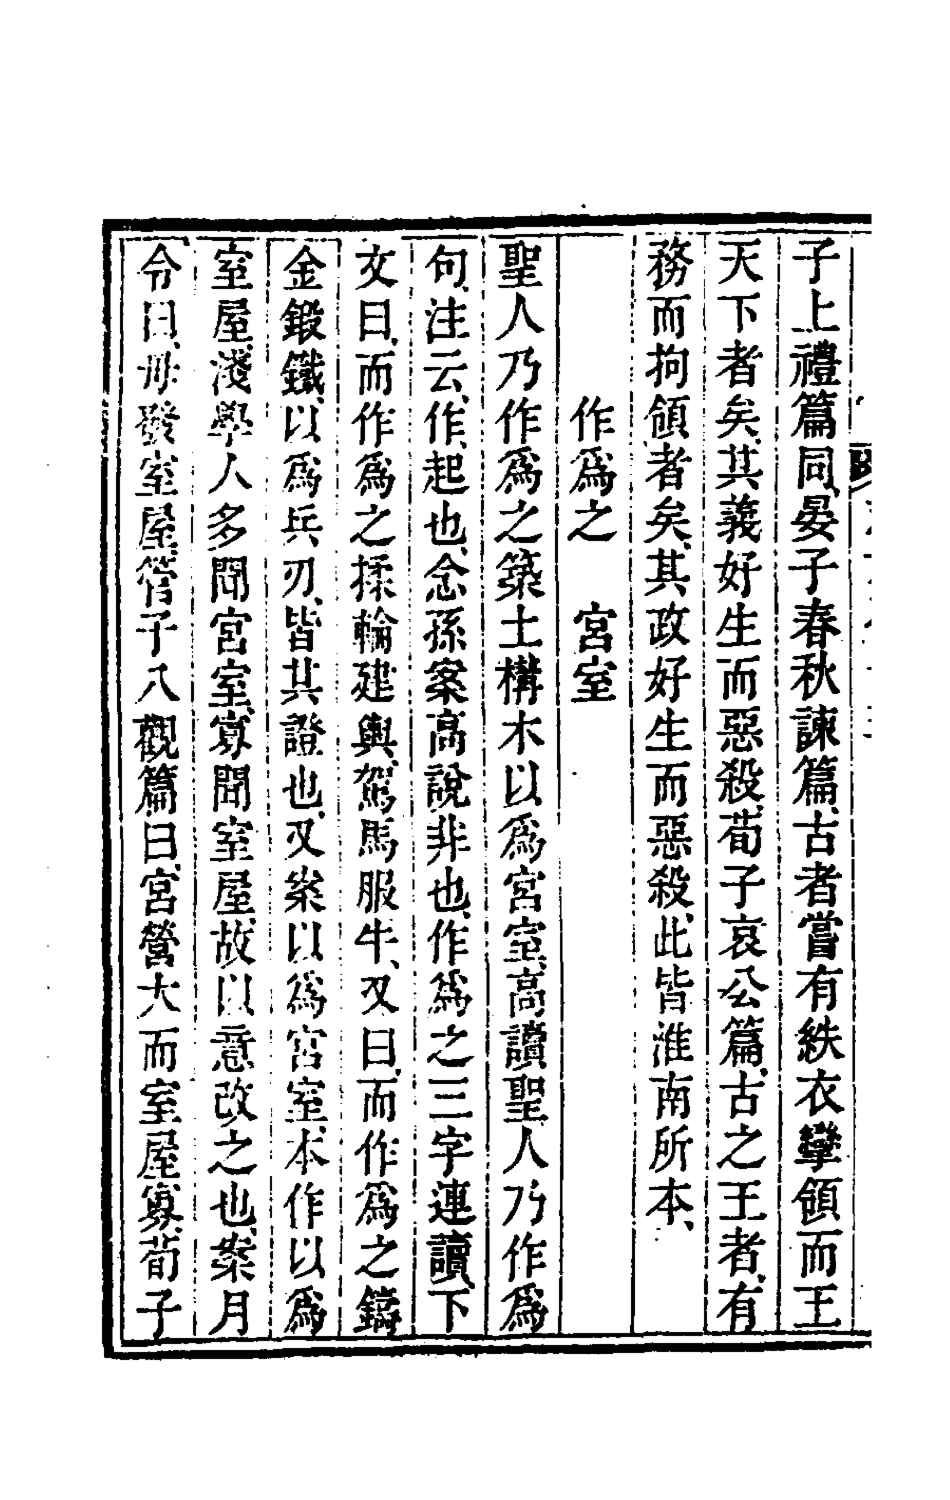 子上禮篇同、晏子春秋諫篇、古者嘗有紩衣攣領而王
天下者矣、其義好生而惡殺、荀子哀公篇、古之王者、有
務而拘領者矣、其政好生而惡殺、此皆淮南所本、
作爲之　宮室
聖人乃作爲之築土構木以爲宮室、高讀聖人乃作爲
句、注云、作、起也、念孫案高說非也、作爲之三字連讀、下
文曰、而作爲之揉輪建輿、駕馬服牛、又曰、而作爲之鑄
金鍛鐵、以爲兵刃、皆其證也、又案以爲宮室本作以爲
室屋、淺學人多聞宮室、寡聞室屋、故以意改之也、案月
令曰、毋發室屋、管子八觀篇曰、宮營大而室屋寡、荀子